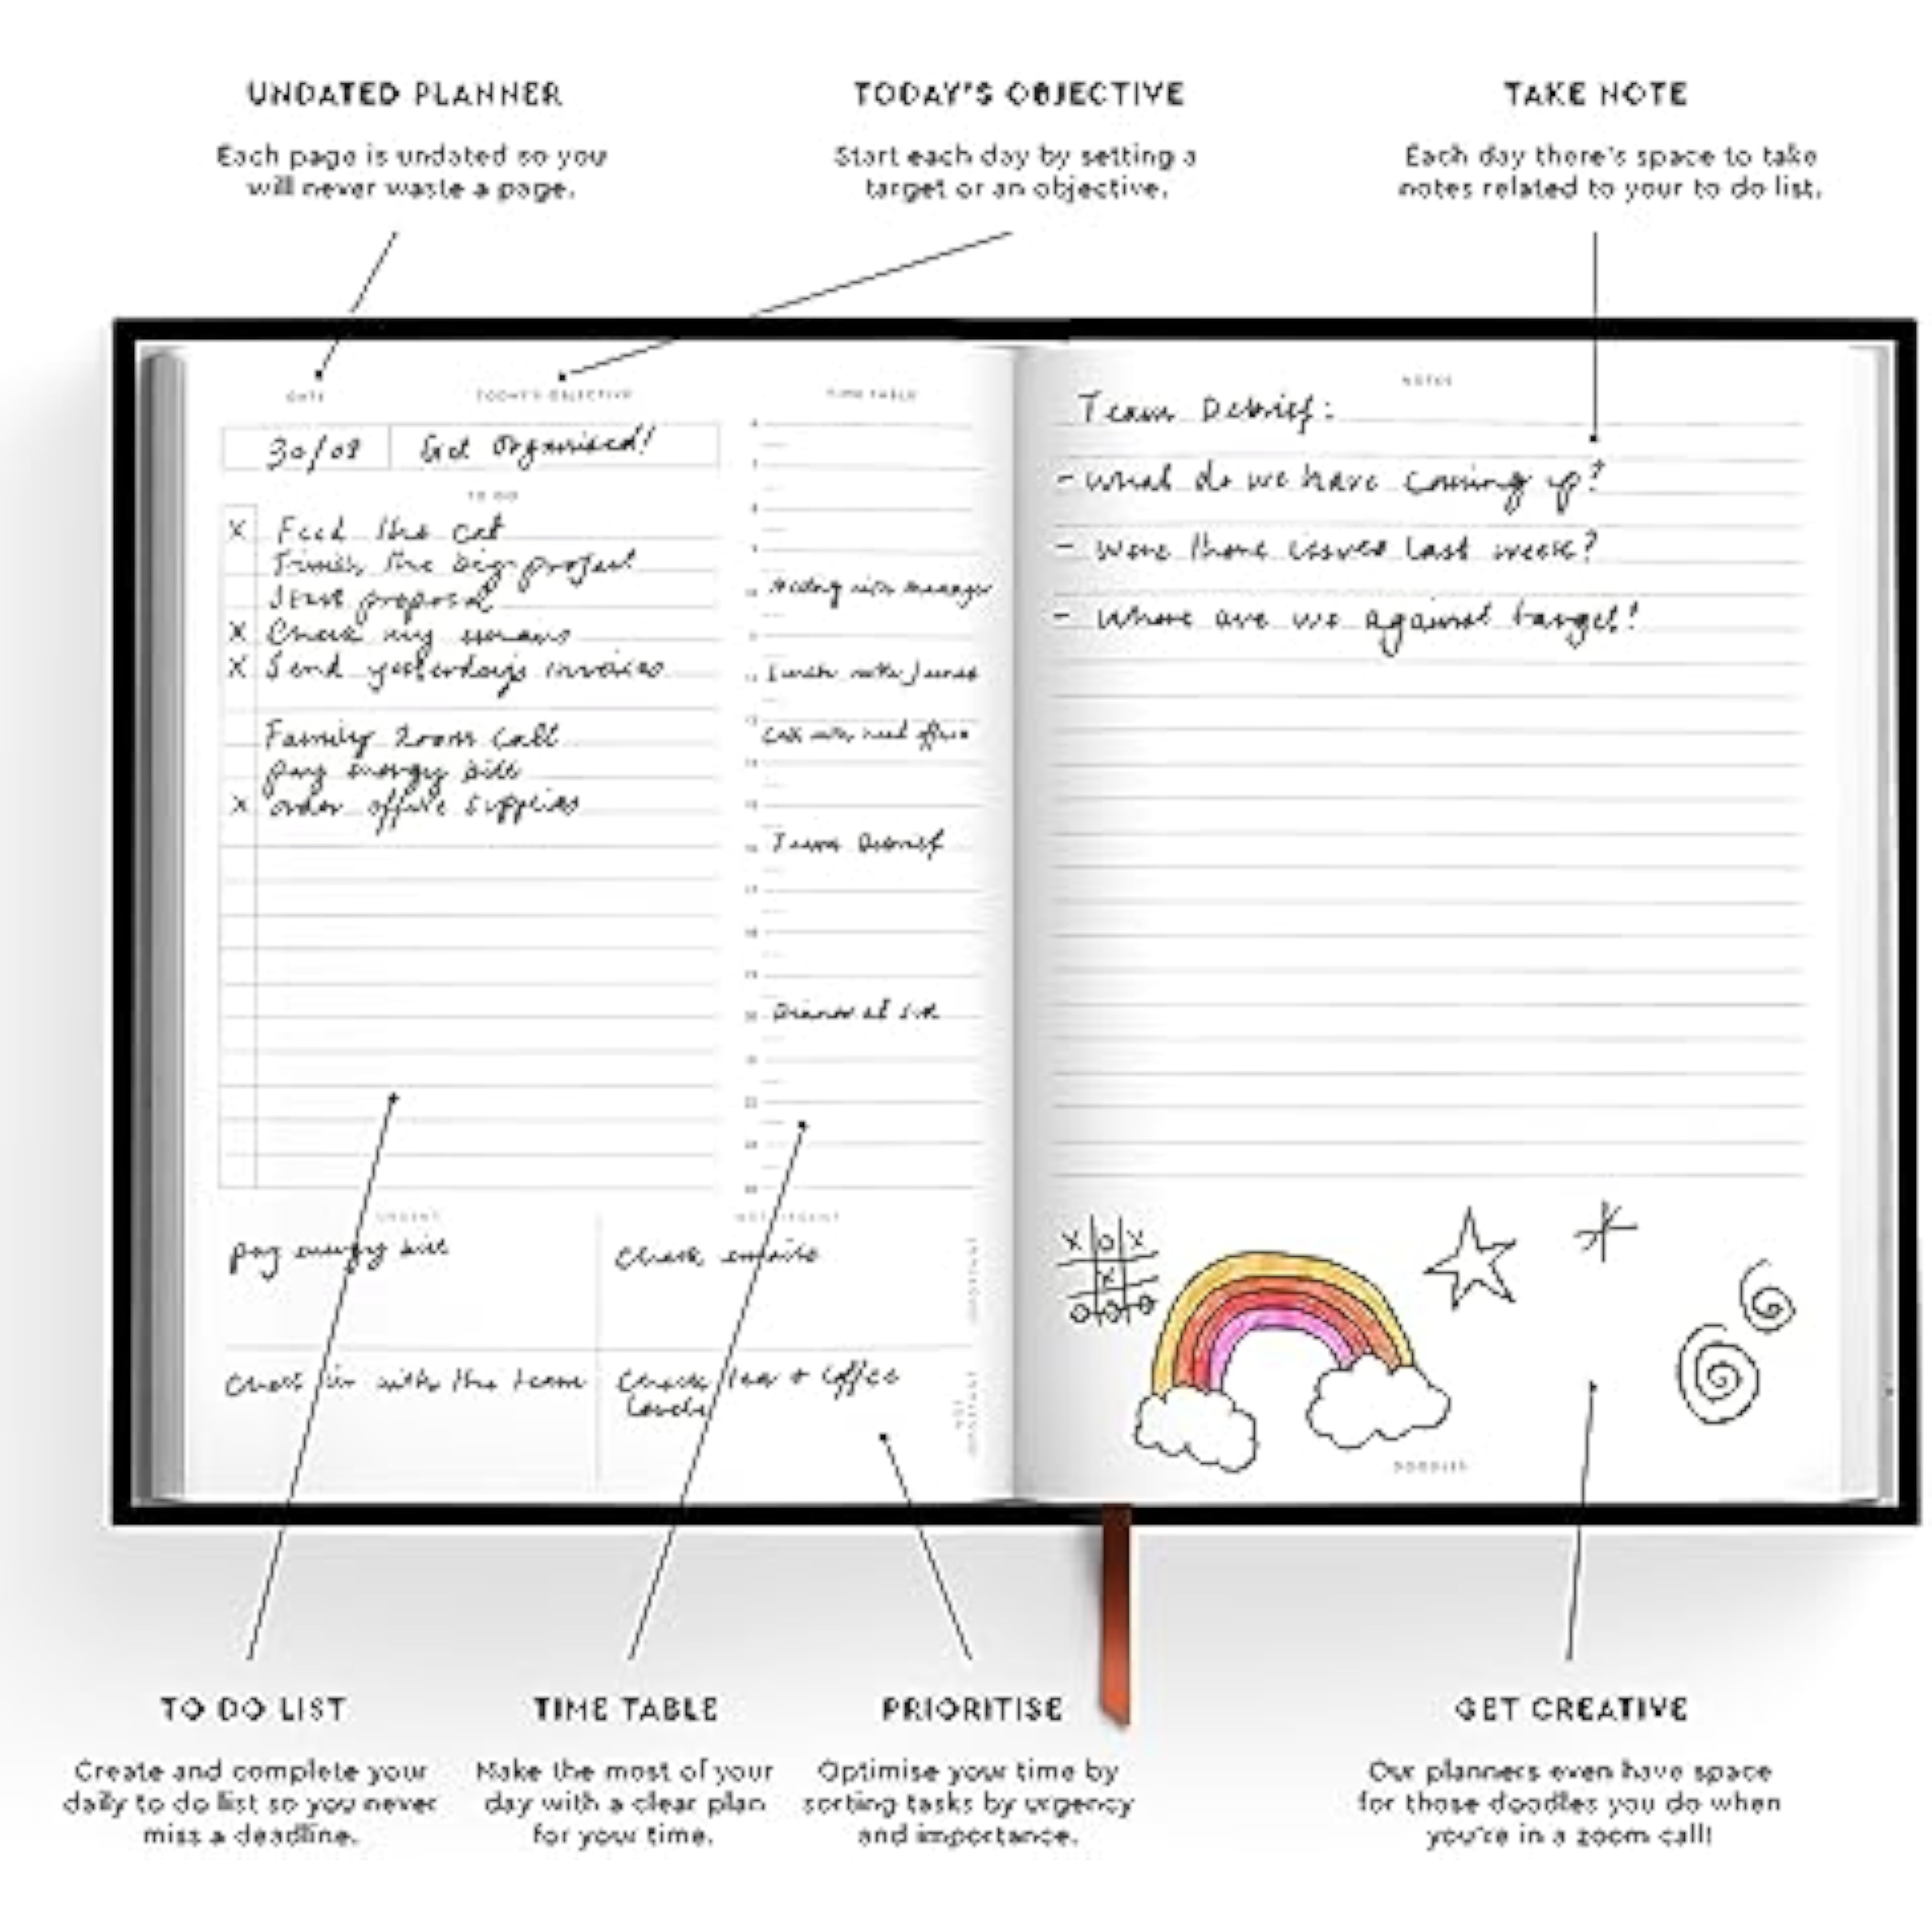 UNDATED PLANNER
Each page is undated so you
will never waste a page.
TODAY'S OBJECTIVE
Start each day by setting a
target or an objective.
TAKE NOTE
Each day there's space to take
notes related to your to do list.
DATE
TODAY'S OBJECTIVE
30/08
Get Organised!
TO DO
X Feed the cat
Finish the big project
Start proposal
X Check my emails
X Send yesterday's invoices
Family Zoom Call
pay energy bill
X order office supplies
TIME TABLE
Meeting with manager
Lunch with James
Call with head office
Team Debrief
Dinner at
URGENT
NOT URGENT
pay energy bill
Check emails
IMPORTANT
Check in with the team
Check tea + coffee
Levels
NOT
IMPORTANT
NOTES
Team Debrief:
- What do we have coming up?
- Were there issues last week?
- Where are we against target!
X O X
X
O O O
DOODLES
TO DO LIST
Create and complete your
daily to do list so you never
miss a deadline.
TIME TABLE
Make the most of your
day with a clear plan
for your time.
PRIORITISE
Optimise your time by
sorting tasks by urgency
and importance.
GET CREATIVE
Our planners even have space
for those doodles you do when
you're in a zoom call!